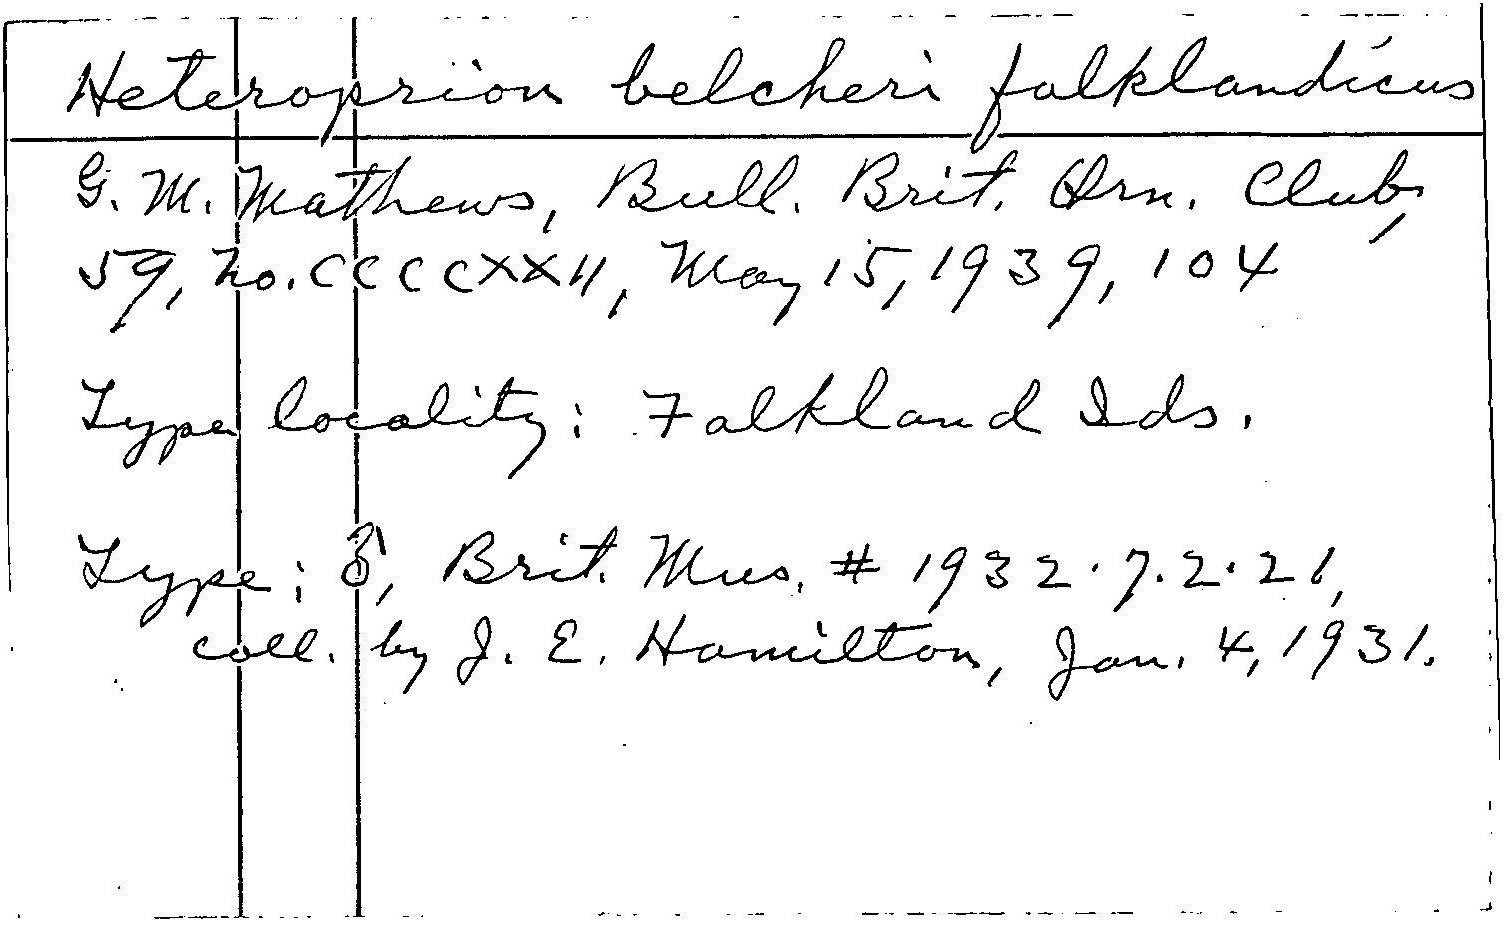 Heteroprion belcheri falklandicus
G. M. Mathews, Bull. Brit. Orn. Club,
59, no. CCCCXXII, May 15, 1939, 104
Type locality: Falkland Ids.
Type: ♂, Brit. Mus. # 1932.7.2.21,
coll. by J. E. Hamilton, Jan. 4, 1931.